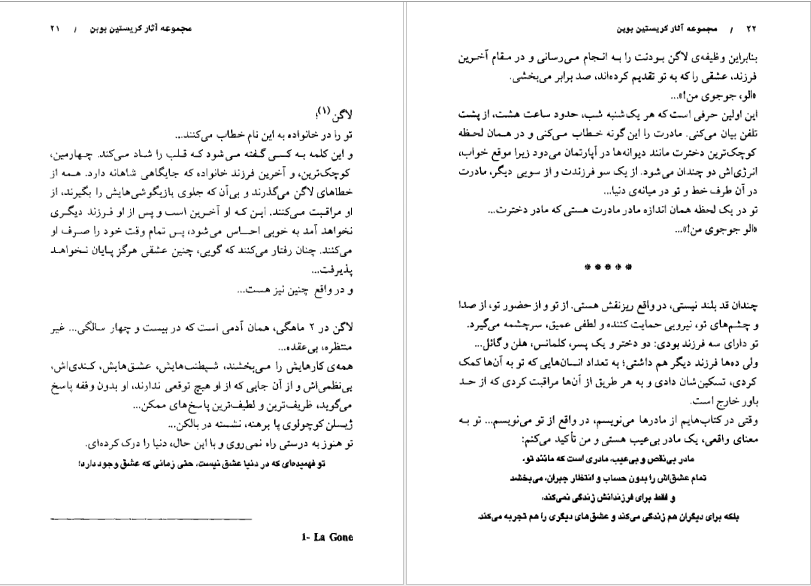 مجموعه آثار کریستین بوبن / ۲۱
لاگن (۱)؛
تو را در خانواده به این نام خطاب می‌کنند...
و این کلمه به کسی گفته می‌شود که قلب را شاد می‌کند. چهارمین،
کوچک‌ترین، و آخرین فرزند خانواده که جایگاهی شاهانه دارد. همه از
خطاهای لاگن می‌گذرند و بی‌آن که جلوی بازیگوشی‌هایش را بگیرند، از
او مراقبت می‌کنند. این که او آخرین است و پس از او فرزند دیگری
نخواهد آمد به خوبی احساس می‌شود، پس تمام وقت خود را صرف او
می‌کنند. چنان رفتار می‌کنند که گویی، چنین عشقی هرگز پایان نخواهد
پذیرفت...
و در واقع چنین نیز هست...
لاگن در ۲ ماهگی، همان آدمی است که در بیست و چهار سالگی... غیر
منتظره، بی‌عقده...
همه‌ی کارهایش را می‌بخشند، شیطنت‌هایش، عشق‌هایش، کندی‌اش،
بی‌نظمی‌اش و از آن جایی که از او هیچ توقعی ندارند، او بدون وقفه پاسخ
می‌گوید، ظریف‌ترین و لطیف‌ترین پاسخ‌های ممکن...
ژیسلن کوچولوی پا برهنه، نشسته در بالکن...
تو هنوز به درستی راه نمی‌روی و با این حال، دنیا را درک کرده‌ای.
تو فهمیده‌ای که در دنیا عشق نیست، حتی زمانی که عشق وجود دارد؛
1- La Gone
۲۲ / مجموعه آثار کریستین بوبن
بنابراین وظیفه‌ی لاگن بودنت را به انجام می‌رسانی و در مقام آخرین
فرزند، عشقی را که به تو تقدیم کرده‌اند، صد برابر می‌بخشی.
«الو، جوجوی من!»...
این اولین حرفی است که هر یک‌شنبه شب، حدود ساعت هشت، از پشت
تلفن بیان می‌کنی. مادرت را این گونه خطاب می‌کنی و در همان لحظه
کوچک‌ترین دخترت مانند دیوانه‌ها در آپارتمان می‌دود زیرا موقع خواب،
انرژی‌اش دو چندان می‌شود. از یک سو فرزندت و از سویی دیگر، مادرت
در آن طرف خط و تو در میانه‌ی دنیا...
تو در یک لحظه همان اندازه مادر مادرت هستی که مادر دخترت...
«الو جوجوی من!»...
* * * * *
چندان قد بلند نیستی، در واقع ریزنقش هستی. از تو و از حضور تو، از صدا
و چشم‌های تو، نیرویی حمایت کننده و لطفی عمیق، سرچشمه می‌گیرد.
تو دارای سه فرزند بودی: دو دختر و یک پسر، کلمانس، هلن و گائل...
ولی ده‌ها فرزند دیگر هم داشتی؛ به تعداد انسان‌هایی که تو به آن‌ها کمک
کردی، تسکین‌شان دادی و به هر طریق از آن‌ها مراقبت کردی که از حد
باور خارج است.
وقتی در کتاب‌هایم از مادرها می‌نویسم، در واقع از تو می‌نویسم... تو به
معنای واقعی، یک مادر بی‌عیب هستی و من تأکید می‌کنم:
مادر بی‌نقص و بی‌عیب، مادری است که مانند تو،
تمام عشق‌اش را بدون حساب و انتظار جبران، می‌بخشد
و فقط برای فرزندانش زندگی نمی‌کند،
بلکه برای دیگران هم زندگی می‌کند و عشق‌های دیگری را هم تجربه می‌کند.